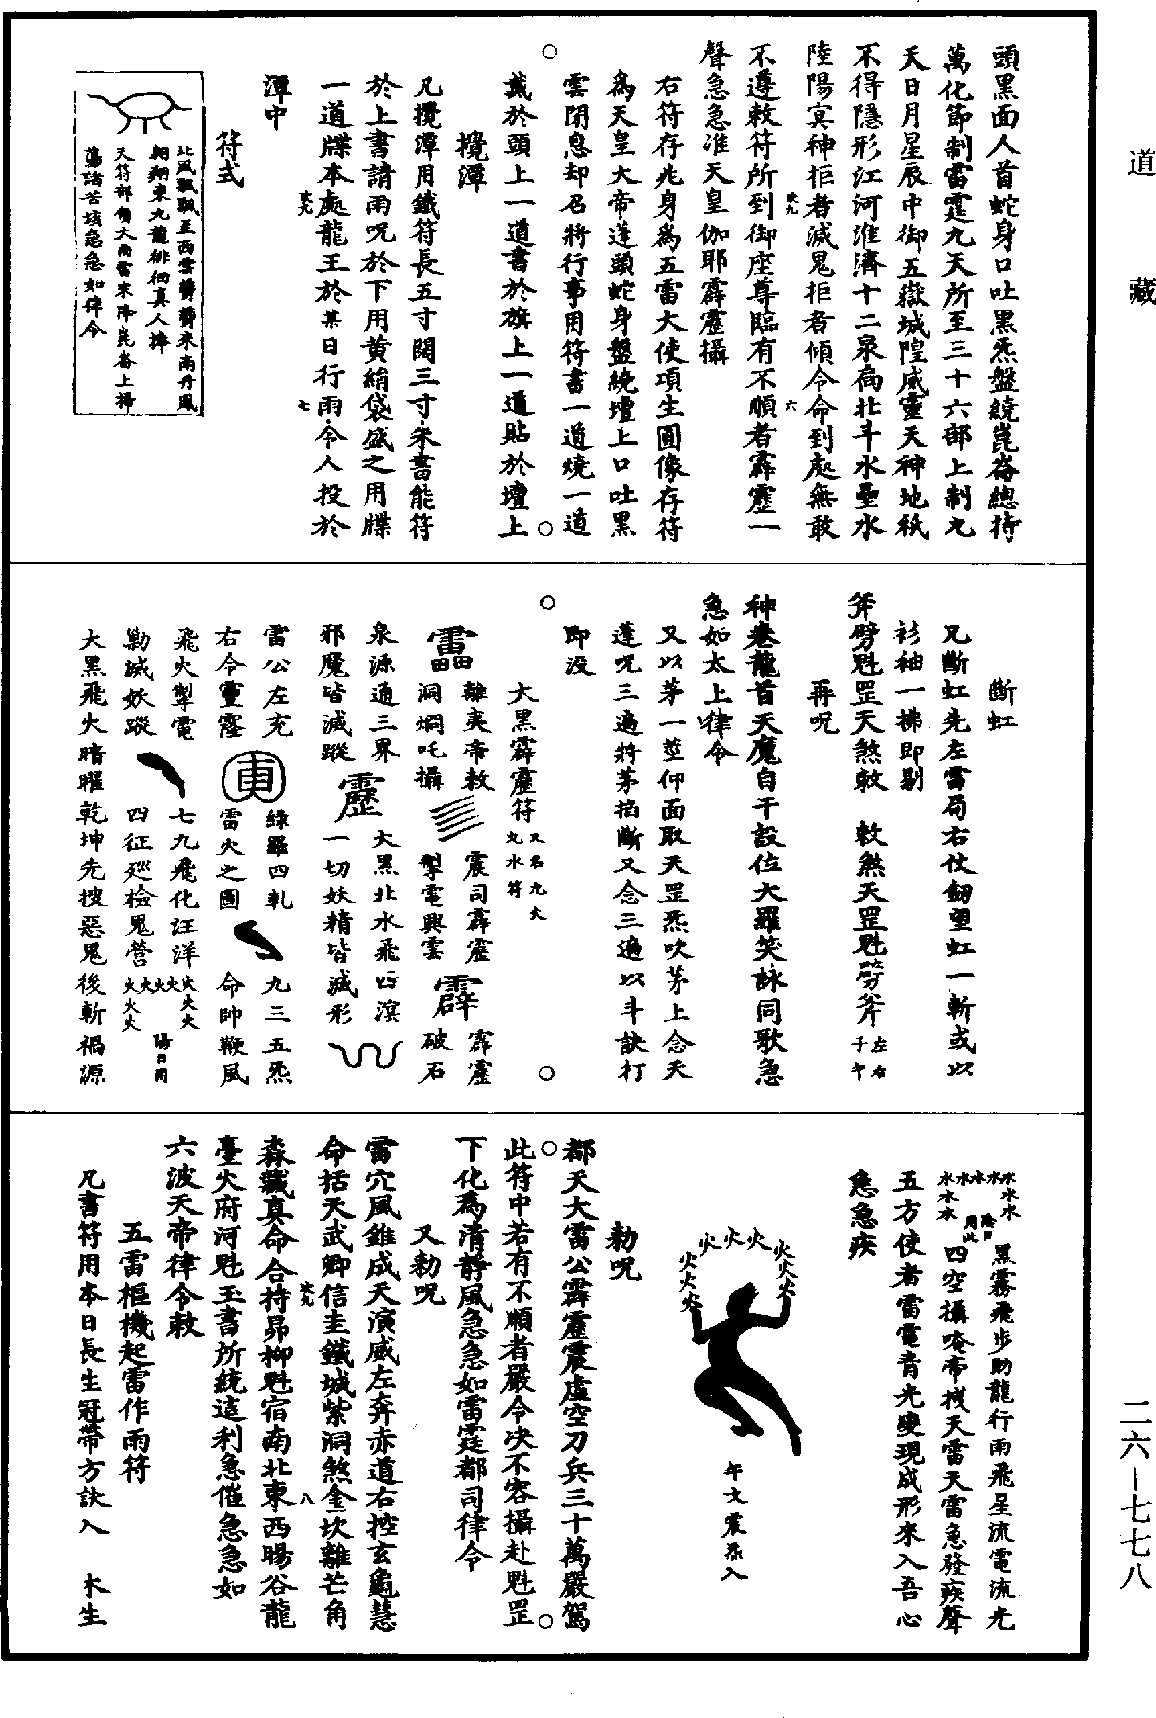 道藏
頭黑面人首蛇身口吐黑炁盤繞崑崙總持
萬化節制雷霆九天所至三十六部上制九
天日月星辰中御五嶽城隍威靈天神地祇
不得隱形江河淮濟十二泉扃北斗水壘水
陸陽冥神拒者滅鬼拒者傾令命到處無敢
不遵敕符所到御座尊臨有不順者霹靂一
聲急急准天皇伽耶霹靂攝
右符存兆身為五雷大使項生圓像存符
為天皇大帝蓬頭蛇身盤繞壇上口吐黑
雲閉息却召將行事用符書一道燒一道
戴於頭上一道書於旗上一道貼於壇上
攪潭
凡攪潭用鐵符長五寸闊三寸朱書能符
於上書請雨呪於下用黃絹袋盛之用牒
一道牒本處龍王於某日行雨令人投於
潭中
符式
北風飄飄至西雲靉靉來南丹鳳
翱翔東九龍徘徊真人捧
天符部領大雨雷來降崑崙上掃
蕩諸苦惱急急如律令
斷虹
凡斷虹先左雷局右仗劒望虹一斬或以
衫袖一拂即剔
斧劈魁罡天煞敕 敕煞天罡魁劈斧左右千午
再呪
神卷龍首天魔自干設位大羅笑詠同歌急
急如太上律令
又以茅一莖仰面取天罡炁吹茅上念天
蓬呪三遍將茅拍斷又念三遍以斗訣打
即没
大黑霹靂符又名九火九水符
雷 離夷帝敕洞炯吒攝 震司霹靂掣電興雲 霹 霹靂破石
泉源通三界邪魔皆滅蹤 靂 大黑北水飛四溟一切妖精皆滅形
雷公左充右令靈霆 綠羅四軋雷火之圖 九三五炁命帥鞭風
飛火掣電勦滅妖蹤 七九飛化汪洋四征廵檢鬼營 火火火火火火火火 陽日用
大黑飛火暗曜乾坤先搜惡鬼後斬禍源
水水水水水水水水 陰日用此 黑霧飛步助龍行雨飛星流電流光
四空攝唵帝拽天雷天雷急發疾聲
五方使者雷電青光變現成形來入吾心
急急疾
火火火火火火火火火火
午文震炁入
勅呪
都天大雷公霹靂震虛空刀兵三十萬嚴駕
此符中若有不順者嚴令决不容攝赴魁罡
下化為清靜風急急如雷霆都司律令
又勅呪
雷穴風錐成天演威左奔赤道右控玄龜慧
命括天武卿信圭鐵城紫洞煞金坎離芒角
森藏真命合持昴柳魁宿南北東西暘谷龍
臺火府河魁玉書所統遠利急催急急如
六波天帝律令敕
五雷樞機起雷作雨符
凡書符用本日長生冠帶方訣入 木生
二六—七七八